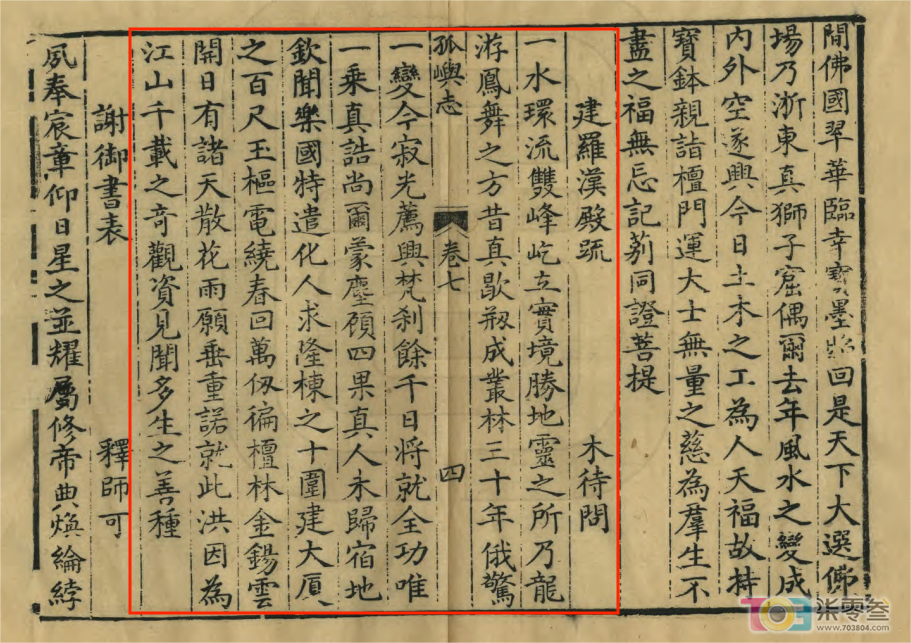 間佛國翠華臨幸寶墨昭回是天下大選佛
場乃浙東真獅子窟偶爾去年風水之變成
内外空遂興今日土木之工為人天福故持
寶鉢親詣檀門運大士無量之慈為羣生不
盡之福無忘記莂同證菩提
建羅漢殿䟽 木待問
一水環流雙峰屹立實境勝地靈之所乃龍
游鳳舞之方昔真歇剏成叢林三十年俄驚
孤嶼志 卷七 四
一變今寂光薦興梵刹餘千日將就全功唯
一乘真誥尚爾蒙塵顧四果真人未歸宿地
欽聞樂國特遣化人求隆棟之十圍建大厦
之百尺玉樞電繞春回萬仭徧檀林金錫雲
開日有諸天散花雨願垂重諾就此洪因為
江山千載之奇觀資見聞多生之善種
謝御書表 釋師可
夙奉宸章仰日星之並耀屬修帝典煥綸綍
703804
张零叁
www.703804.com